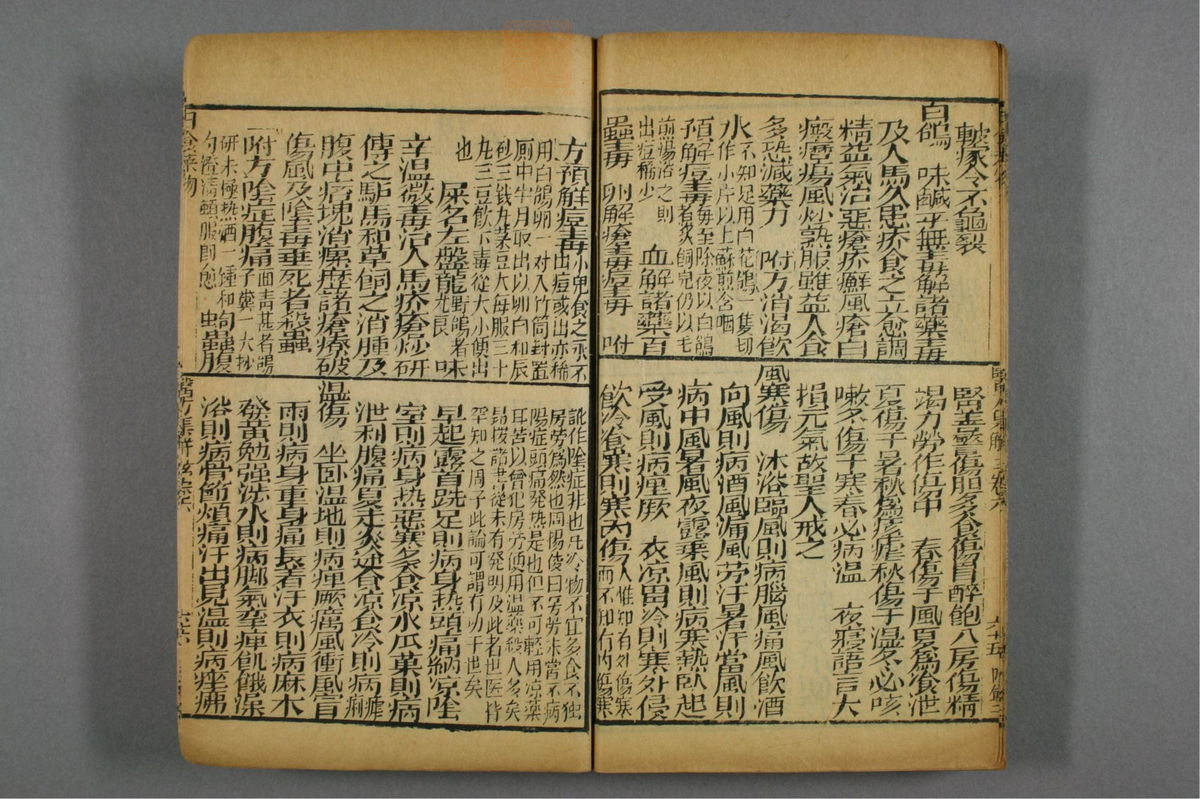 皸瘃令不龜裂
白鴿　味鹹平無毒解諸藥毒
及人馬久患疥食之立愈調
精益氣治惡瘡疥癬風瘡白
癜癧瘍風炒熟服雖益人食
多恐減藥力　附方消渴飲
水不知足用白花鴿一隻切
作小片以土蘇煎含咽
預解痘毒每至除夜以白鴿
煮炙飼兒仍以毛
煎湯浴之則
出痘稀少　血解諸藥百
蠱毒　卵解瘡毒痘毒　附
腎毒盛傷胆多食傷胃醉飽入房傷精
竭力勞作傷中　春傷于風夏為飧泄
夏傷于暑秋為痎瘧秋傷于濕冬必咳
嗽冬傷于寒春必病溫　夜寢語言大
損元氣故聖人戒之
風寒傷　沐浴臨風則病腦風痛風飲酒
向風則病酒風漏風勞汗暑汗當風則
病中風暑風夜露乘風則病寒熱臥起
受風則病痺厥　衣涼冒冷則寒外侵
飲冷飡寒則寒內傷人惟知有外傷寒
而不知有內傷寒
方預解痘毒小兒食之永不
出痘或出亦稀
用白鴿卵一对入竹筒封置
厠中半月取出以卵白和辰
砂三錢丸菉豆大每服三十
丸三豆飲下毒從大小便出
也
屎名左盤龍野鴿者
尤良味
辛溫微毒治人馬疥瘡炒研
傅之驢馬和草飼之消腫及
腹中痞塊消瘰癧諸瘡療破
傷風及陰毒垂死者殺蟲
附方陰症腹痛面青甚者鴿
子糞一大抄
研末極热酒一鍾和勻
勺澄清頓服即愈　蟲
訛作陰症非也凡冷物不宜多食不独
房勞為然也周慎斎曰房勞未嘗不病
陽症頭痛発热是也但不可輕用涼藥
耳若以曾犯房勞便用温藥殺人多矣
昂按諸書從未有発明及此者世医皆
罕知之周子此論可謂有功千古矣
早起露首跣足則病身热頭痛納涼陰
室則病身热惡寒多食凉水瓜菓則病
泄利腹痛夏走炎途食凉食冷則病瘧
痢
温傷　坐臥湿地則病痺厥癘風衝風冒
雨則病身重身痛長着汗衣則病麻木
發黃勉强涉水則病脚氣攣痺飢餓澡
浴則病骨節煩痛汗出見湿則病痤疿